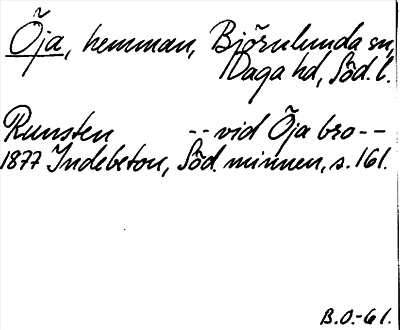 Öja, hemman, Björnlunda sn,
Daga hd, Söd. l.
Runsten -- vid Öja bro --
1877 Indebetou, Söd. minnen, s. 161.
B.O.-61.